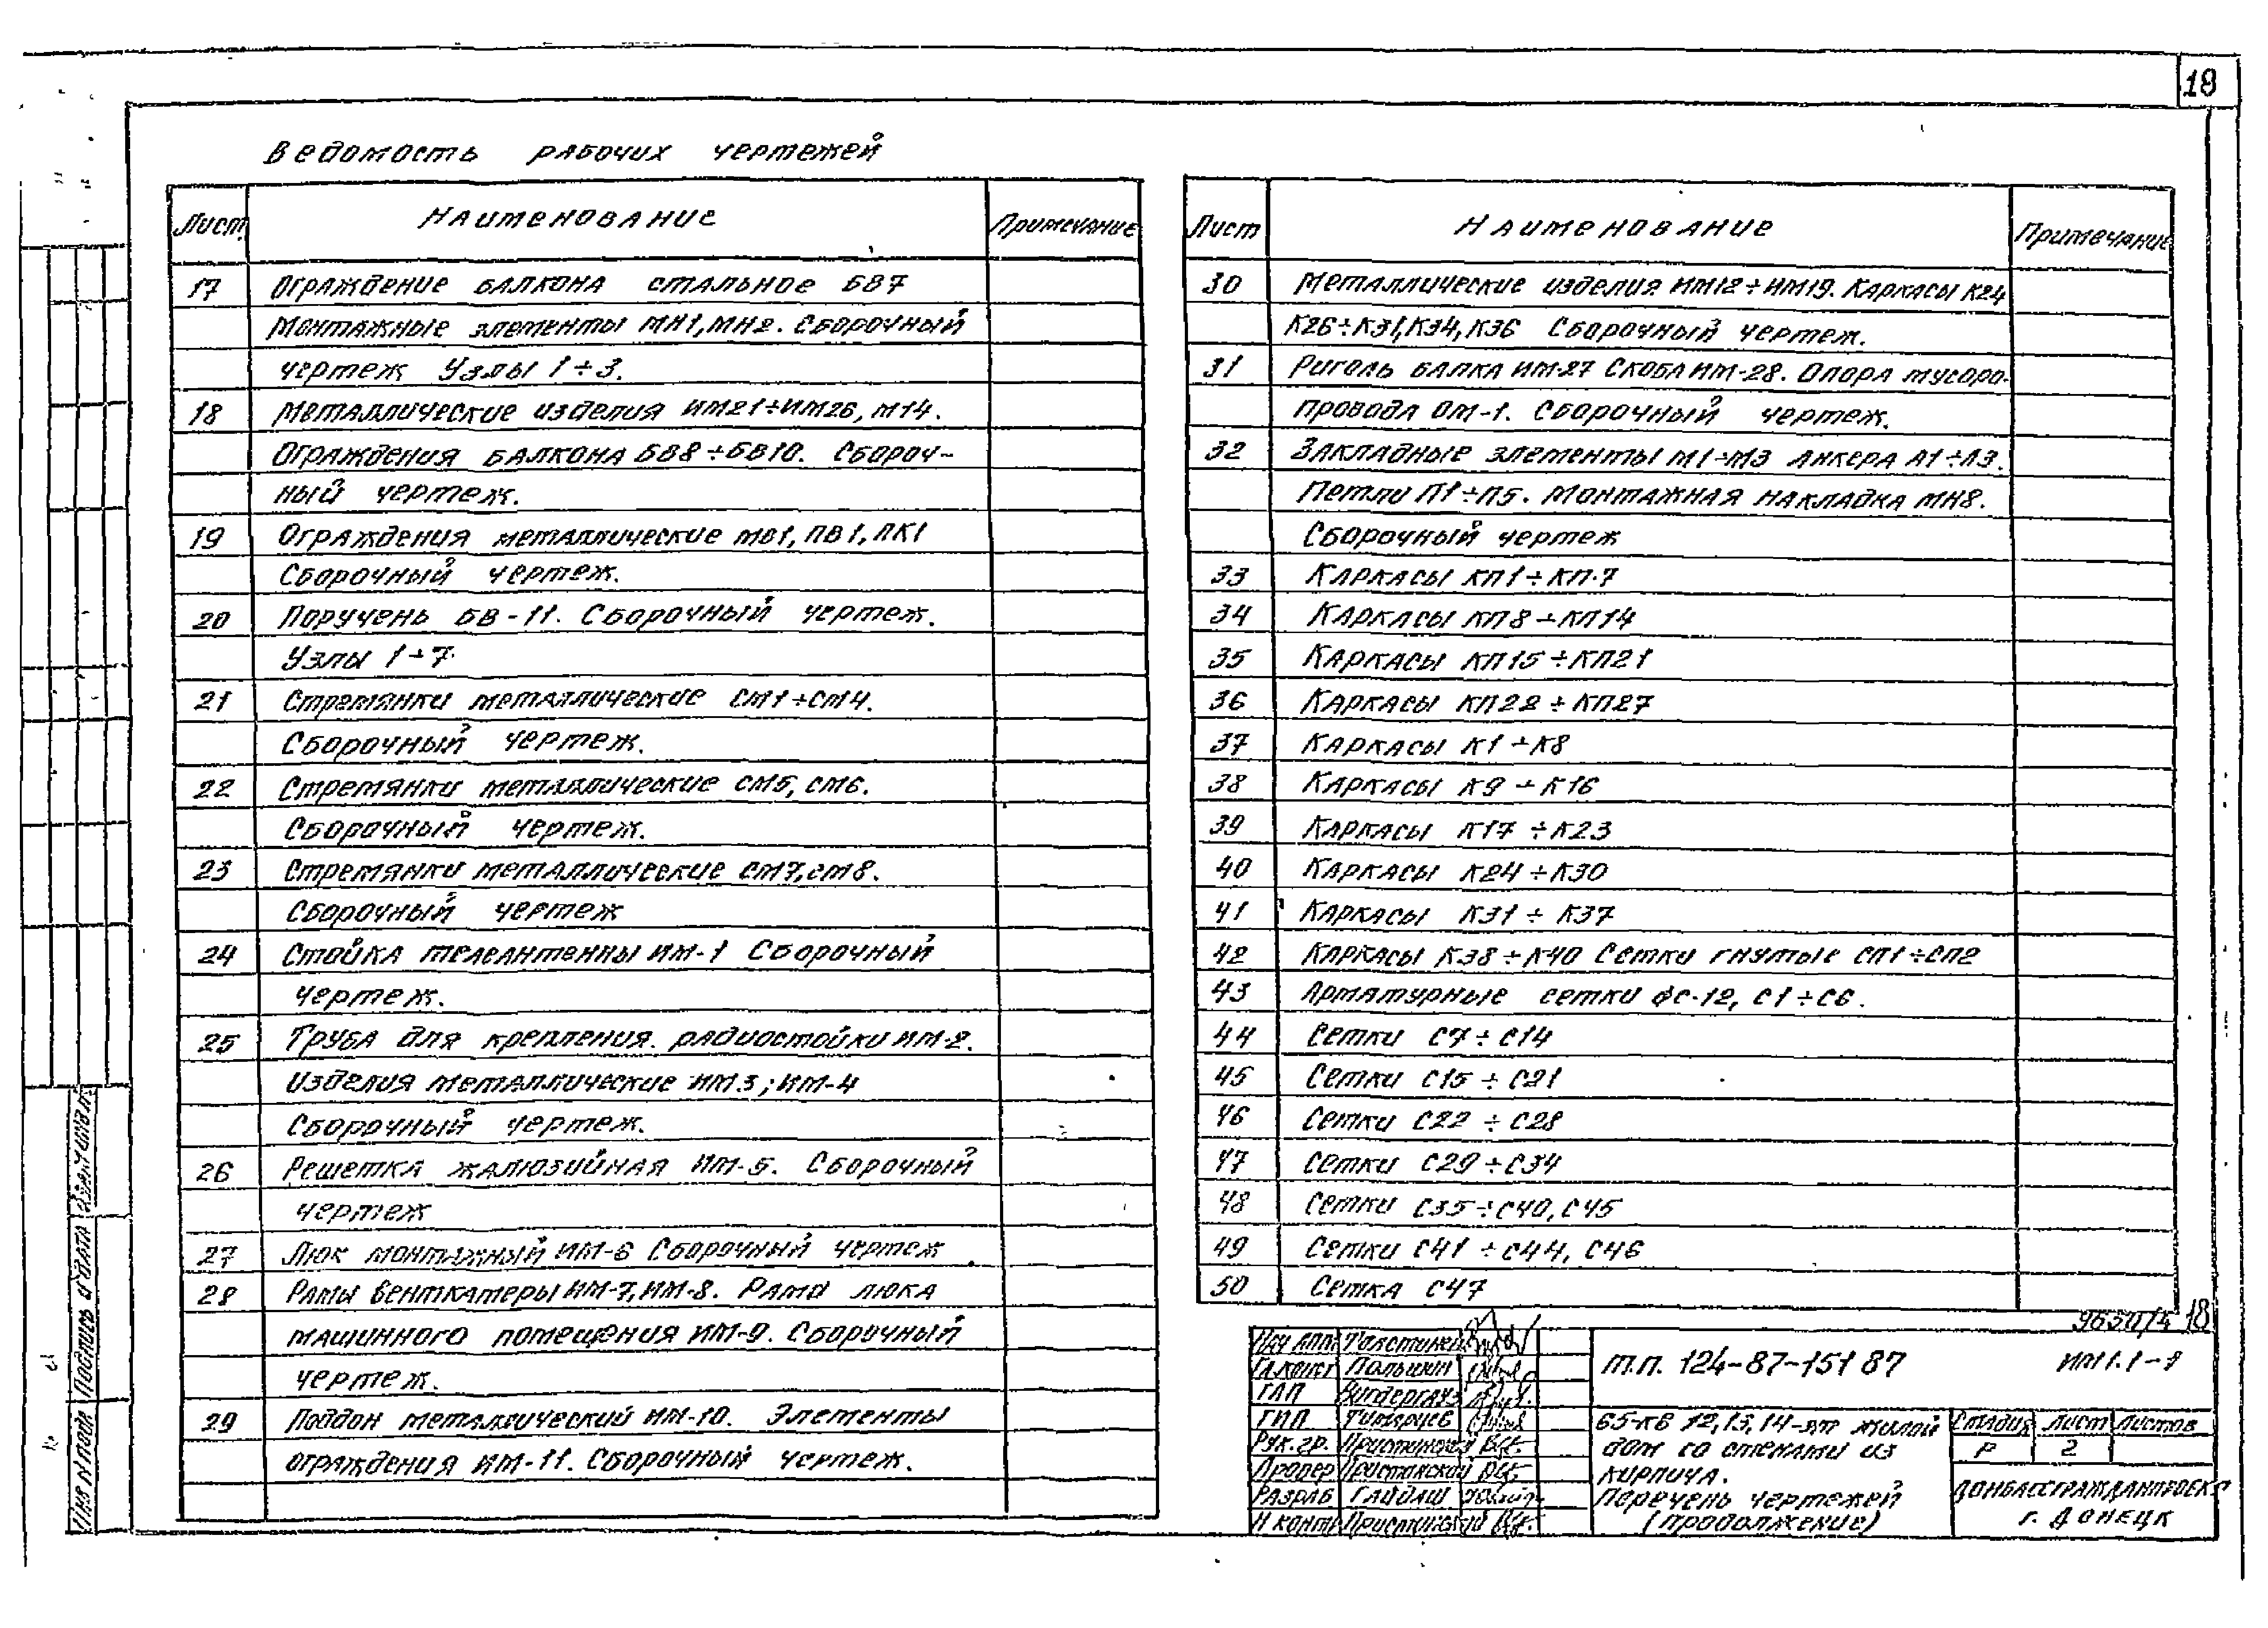 18
Ведомость рабочих чертежей
Лист Наименование Примечание
17 Ограждение балкона стальное БВ7
Монтажные элементы МН1, МН2. Сборочный
чертеж Узлы 1÷3.
18 Металлические изделия ИМ21÷ИМ26, М14.
Ограждения балкона БВ8÷БВ10. Сбороч-
ный чертеж.
19 Ограждения металлические МВ1, ПВ1, ПК1
Сборочный чертеж.
20 Поручень БВ-11. Сборочный чертеж.
Узлы 1÷7.
21 Стремянки металлические СМ1÷СМ4.
Сборочный чертеж.
22 Стремянки металлические СМ5, СМ6.
Сборочный чертеж.
23 Стремянки металлические СМ7, СМ8.
Сборочный чертеж
24 Стойка телеантенны ИМ-1 Сборочный
чертеж.
25 Труба для крепления радиостойки ИМ-2.
Изделия металлические ИМ3; ИМ-4
Сборочный чертеж.
26 Решетка жалюзийная ИМ-5. Сборочный
чертеж
27 Люк монтажный ИМ-6 Сборочный чертеж
28 Рамы венткамеры ИМ-7, ИМ-8. Рама люка
машинного помещения ИМ-9. Сборочный
чертеж.
29 Поддон металлический ИМ-10. Элементы
ограждения ИМ-11. Сборочный чертеж.
Лист Наименование Примечание
30 Металлические изделия ИМ12÷ИМ19. Каркасы К24
К26÷К31, К34, К36 Сборочный чертеж.
31 Ригель балка ИМ-27 Скоба ИМ-28. Опора мусоро-
провода ОМ-1. Сборочный чертеж.
32 Закладные элементы М1÷М3 Анкера А1÷А3.
Петли П1÷П5. Монтажная накладка МН8.
Сборочный чертеж
33 Каркасы КП1÷КП-7
34 Каркасы КП8÷КП14
35 Каркасы КП15÷КП21
36 Каркасы КП22÷КП27
37 Каркасы К1÷К8
38 Каркасы К9÷К16
39 Каркасы К17÷К23
40 Каркасы К24÷К30
41 Каркасы К31÷К37
42 Каркасы К38÷К40 Сетки гнутые СП1÷СП2
43 Арматурные сетки ФС-12, С1÷С6.
44 Сетки С7÷С14
45 Сетки С15÷С21
46 Сетки С22÷С28
47 Сетки С29÷С34
48 Сетки С35÷С40, С45
49 Сетки С41÷С44, С46
50 Сетка С47
9650/4 18
т.п. 124-87-151 87
65-кв 12,13,14-эт жилой
дом со стенами из
кирпича.
Перечень чертежей
(продолжение)
Стадия Лист Листов
Р 2
ДОНБАССГРАЖДАНПРОЕКТ
г. Донецк
ГАП
ГИП
Рук.гр.
Провер
Разраб Гайдаш
Н контр
Подпись и дата
Инв N подл